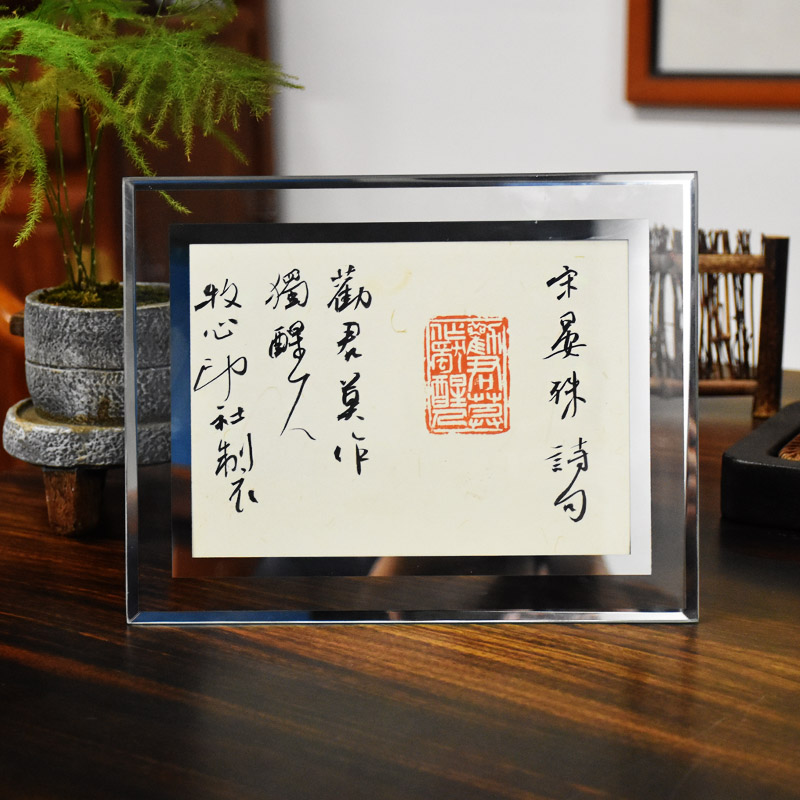 宋晏殊詩句
勸君莫作獨醒人
勸君莫作
獨醒人
牧心印社制